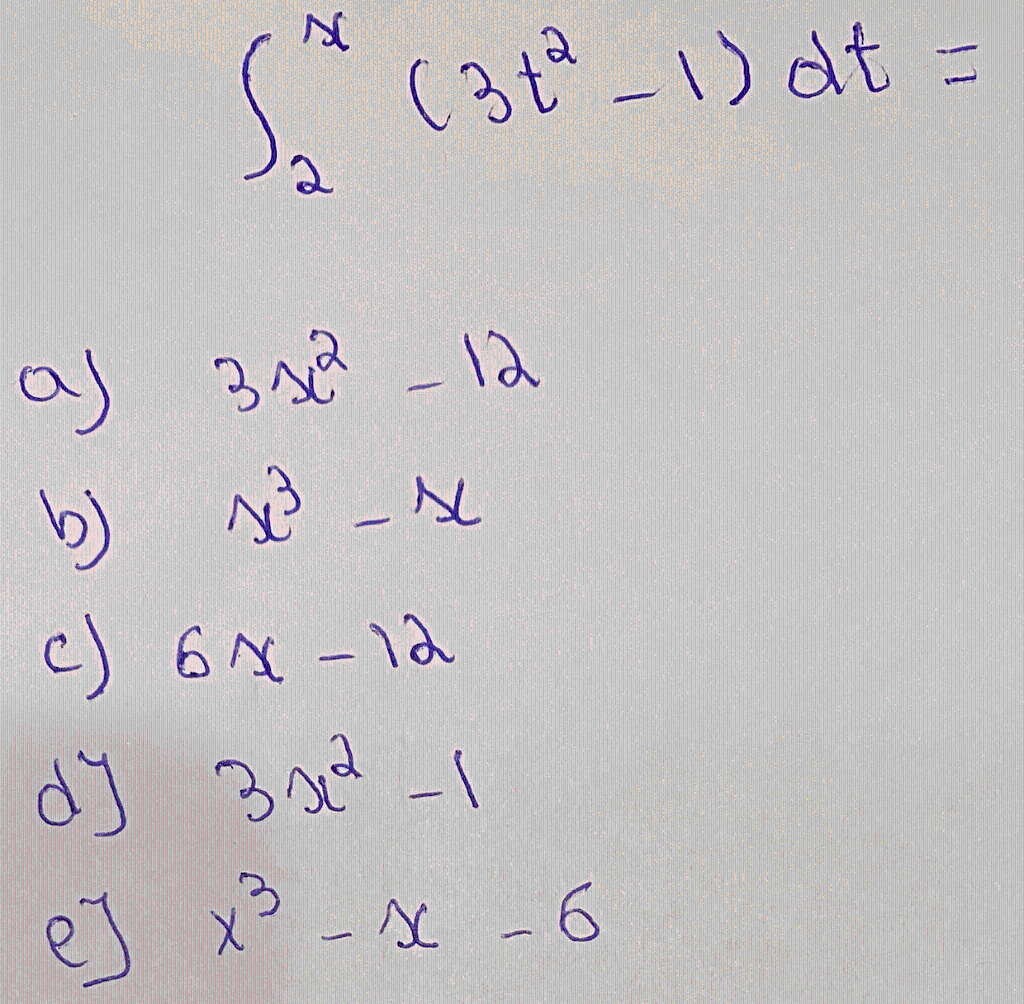 ∫₂ˣ (3t² - 1) dt =
a) 3x² - 12
b) x³ - x
c) 6x - 12
d) 3x² - 1
e) x³ - x - 6